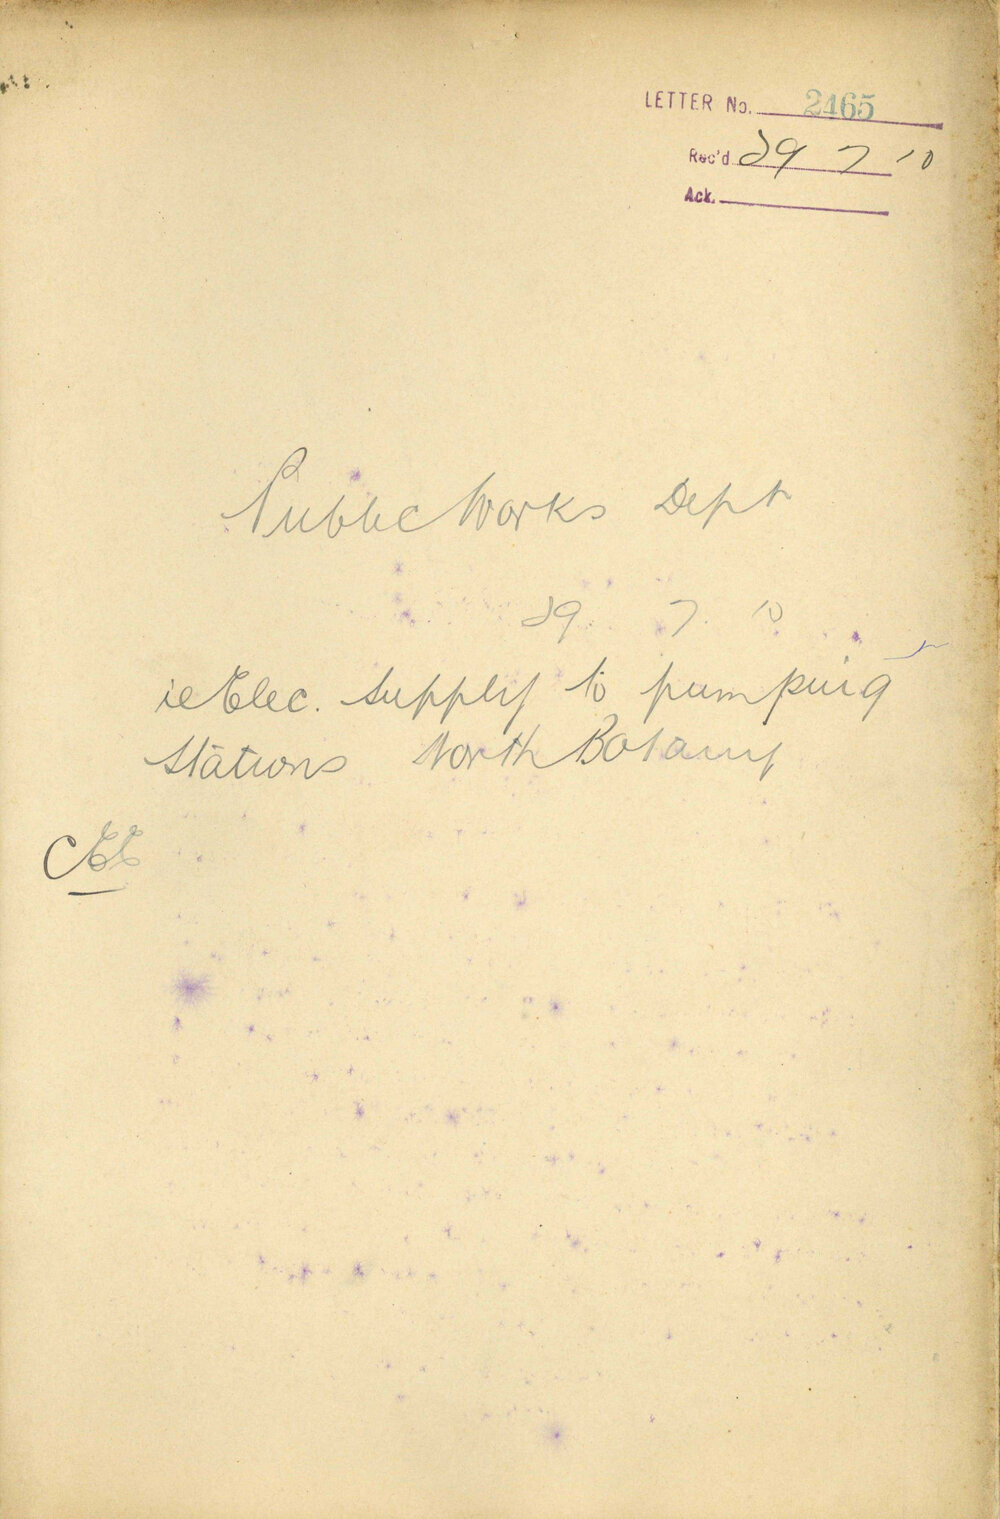 LETTER No. 2465
Rec'd 29 7 10
Ack.
Public Works Dept
29. 7. 10
re Elec. supply to pumping
stations North Botany
CEE